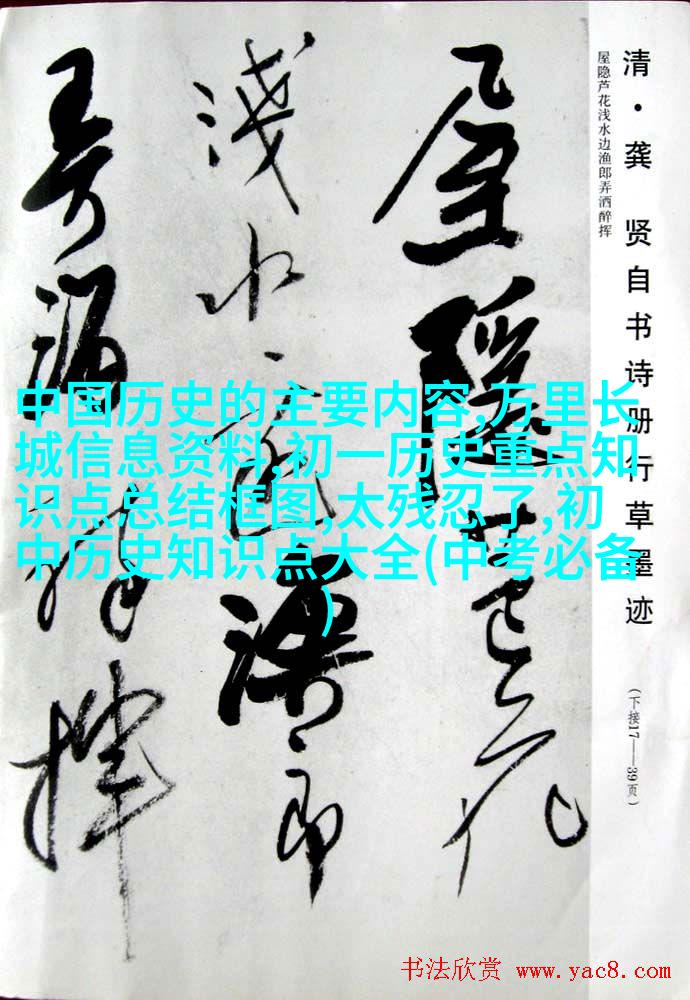 清·龚 贤自书诗册行草墨迹
屋隐芦花浅水边渔郎弄洒醉挥
(下接17——39页)
屋隐芦花
浅水边渔郎
弄酒醉挥
中国历史的主要内容,万里长
城信息资料,初一历史重点知
识点总结框图,太残忍了,初
中历史知识点大全(中考必备
)
书法欣赏 www.yac8.com